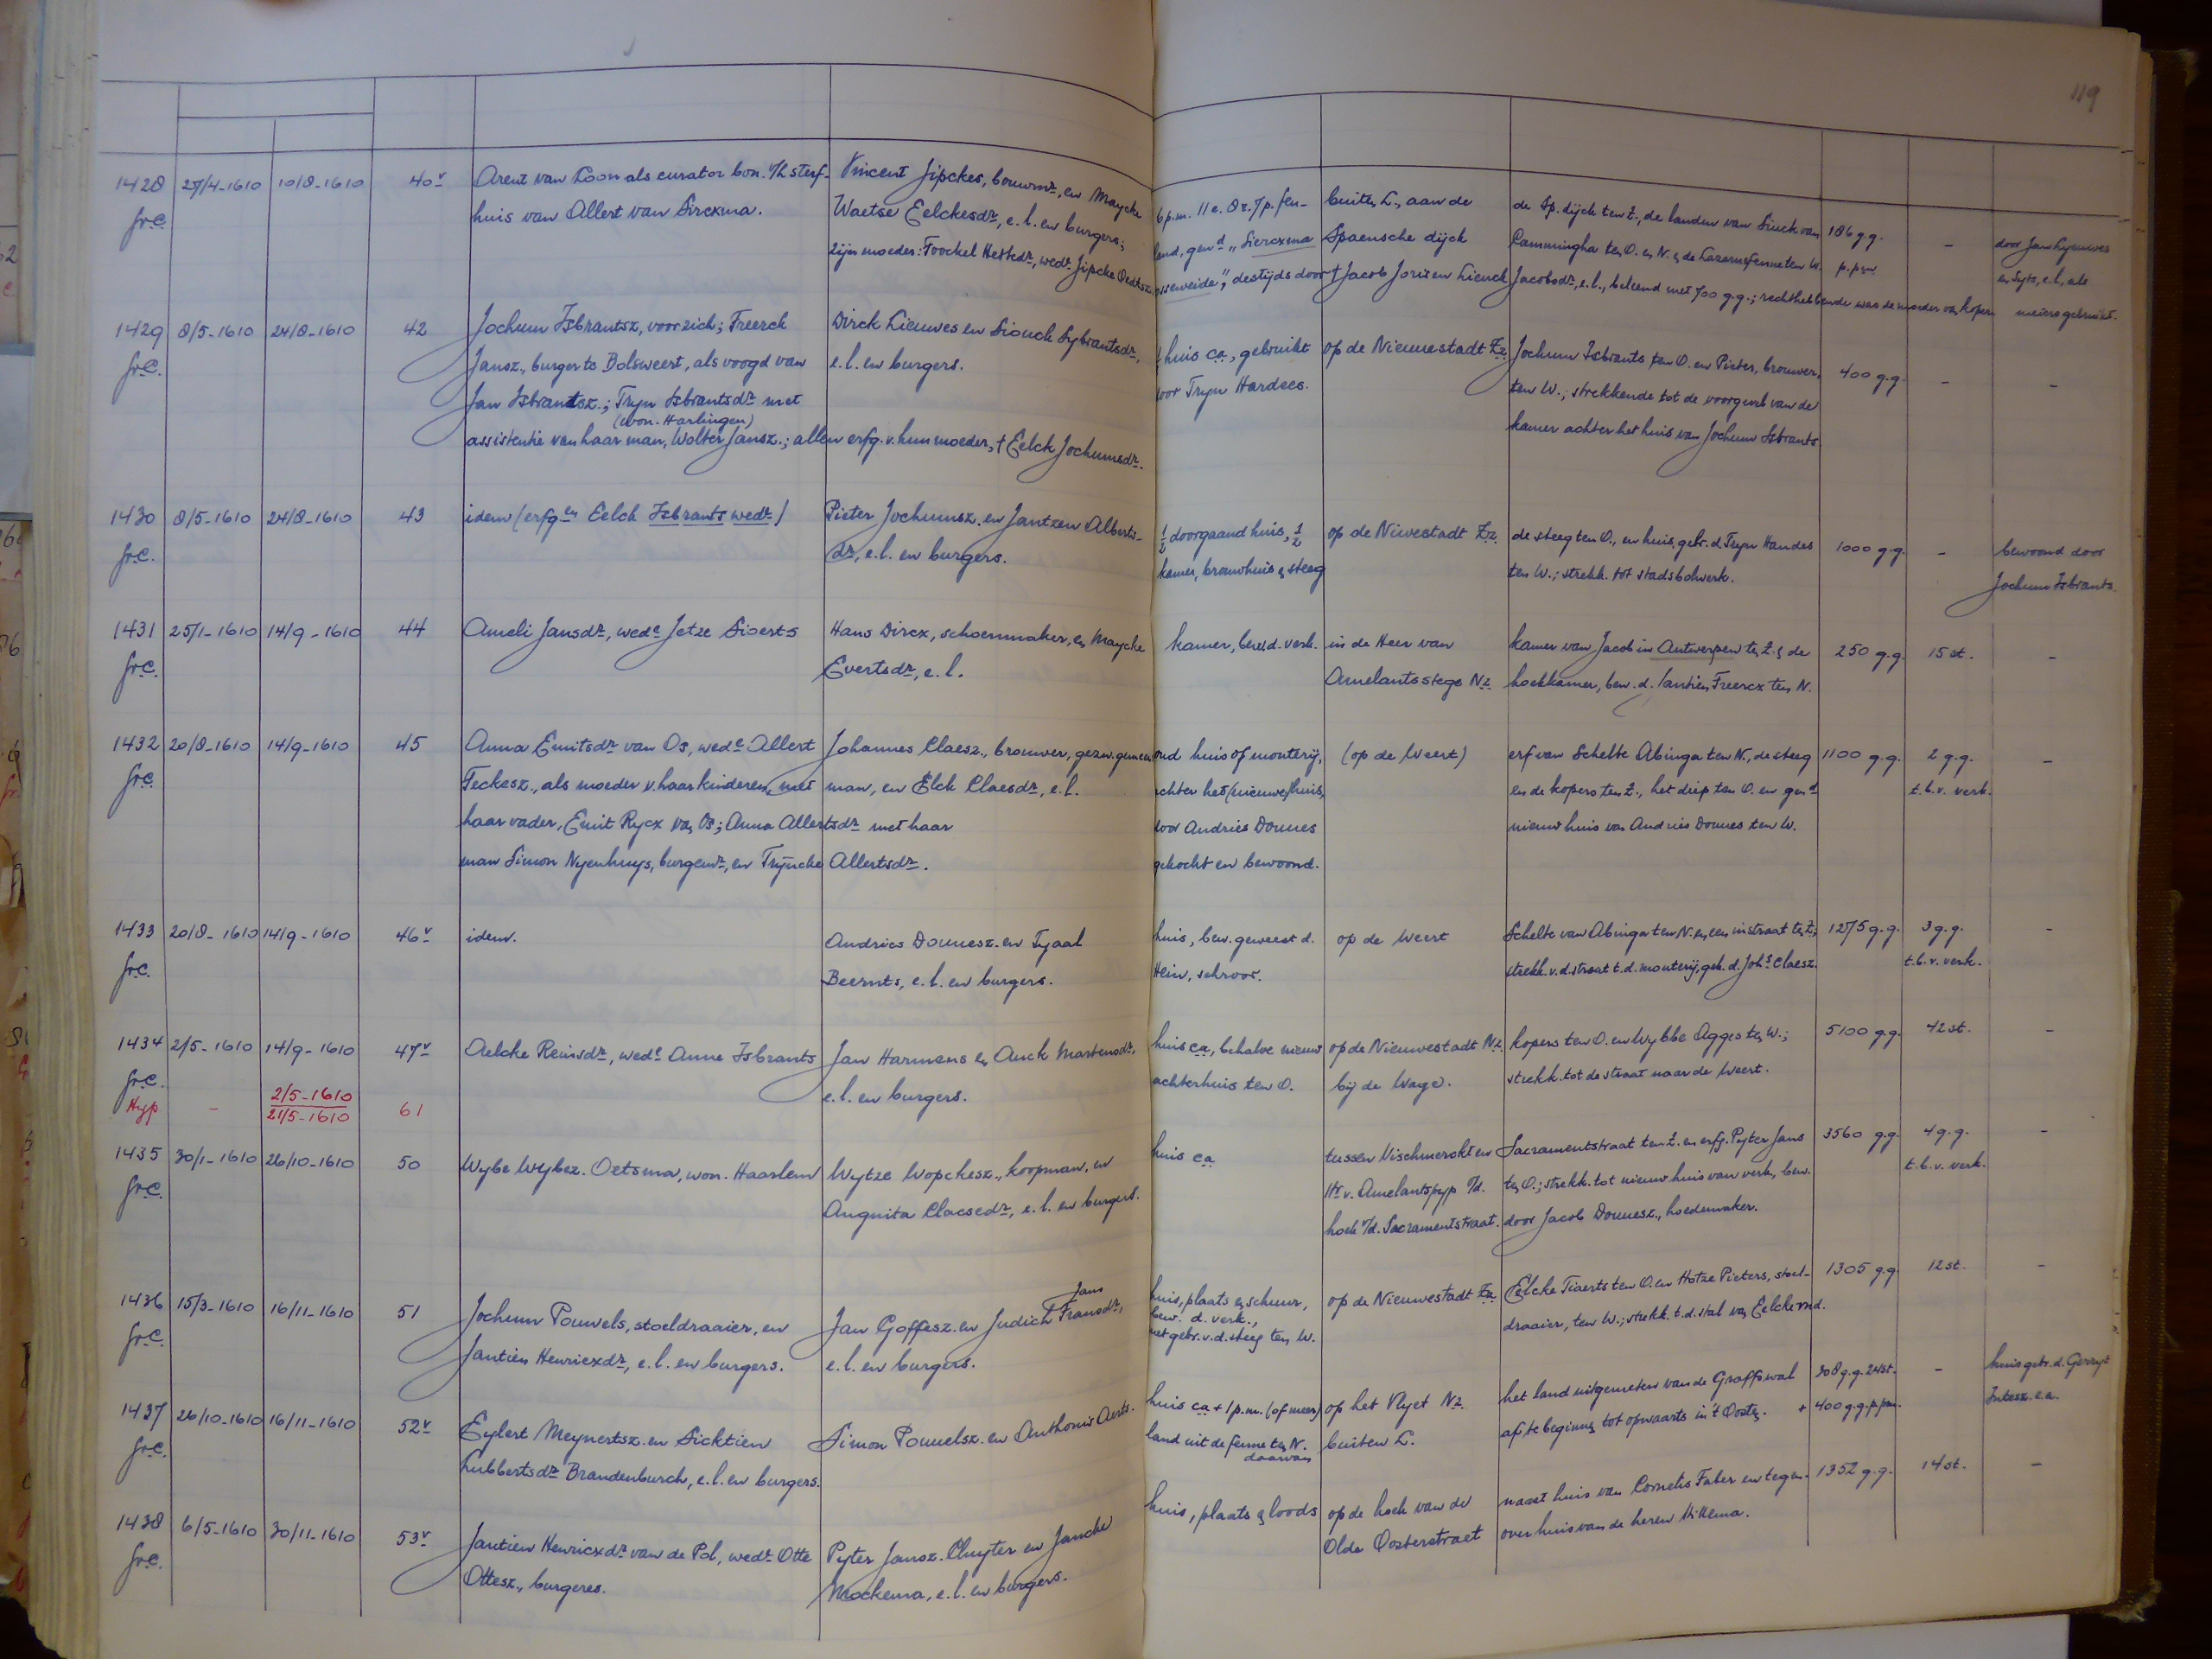 119
1428 27/4-1610 10/8-1610 40v Arent van Loon als curator bon. v/h sterf- Vincent Jipckes, bouwmr, en Maycke 6 p.m. 11 e. 8 r. 7 p. fen- buiten L., aan de de Sp. dijck ten Z., de landen van Siuck van 186 g.g. -
gr.C. huis van Allert van Sircxma. Waetse Eelckesdr, e.l. en burgers; land, gen.d "Siercxma Spaensche dijck Cammingha ten O. en N. en de Lazarusfenne ten W. p.pm door Jan Lyeuwes
zijn moeder: Foockel Hettedr, wedr. Jipcke Oedtsz. ossenweide", destijds door † Jacob Joris en Lieuck Jacobsdr, e.l., beleend met 700 g.g.; rechthebbende was de moeder van kopers en Syts, e.l., als
meiers gebruikt.
1429 8/5-1610 24/8-1610 42 Jochum Isbrantsz, voor zich; Freerck Dirck Lieuwes en Siouck Sybrantsdr, huis ca, gebruikt op de Nieuwestadt Zz. Jochum Isbrants ten O. en Pieter, brouwer, 400 g.g. - -
gr.C. Jansz., burger te Bolsweert, als voogd van e.l. en burgers. door Tryn Hardees. ten W.; strekkende tot de voorgevel van de
Jan Isbrantsz.; Tryn Isbrantsdr met kamer achter het huis van Jochum Isbrants.
(won. Harlingen)
assistentie van haar man, Wolter Jansz.; allen erfg. v. hun moeder, † Eelck Jochumsdr.
1430 8/5-1610 24/8-1610 43 idem (erfg.en Eelck Isbrants wedr.) Pieter Jochumsz. en Jantzen Alberts- ½ doorgaand huis, ½ op de Niewestadt Zz. de steeg ten O., en huis, gebr. d. Tryn Handes 1000 g.g. - bewoond door
gr.C. dr, e.l. en burgers. kamer, brouwhuis en steeg ten W.; strekk. tot stadsbolwerk. Jochum Isbrants.
1431 25/1-1610 14/9-1610 44 Ameli Jansdr, wede Jetze Sioerts Hans Dircx, schoenmaker, en Maycke kamer, bew.d. verk. in de Heer van kamer van Jacob in Antwerpen ten Z. en de 250 g.g. 15 st. -
gr.C. Evertsdr, e.l. Amelantsstege Nz. hoekkamer, bew. d. Jantien Freercx ten N.
1432 20/8-1610 14/9-1610 45 Anna Emitsdr van Os, wede Allert Johannes Claesz., brouwer, gezw. gemeens- oud huis of monterij, (op de Weert) erf van Schelte Abinga ten N., de steeg 1100 g.g. 2 g.g. -
gr.C. Feckesz., als moeder v. haar kinderen, met man, en Elck Claesdr, e.l. achter het (nieuwe) huis, en de kopers ten Z., het diep ten O. en gen.d t.b.v. verk.
haar vader, Emit Rycx van Os; Anna Allertsdr met haar door Andries Douues nieuw huis van Andries Douues ten W.
man Simon Nyenhuys, burgemr, en Trijncke Allertsdr. gekocht en bewoond.
1433 20/8-1610 14/9-1610 46v idem. Andries Douuesz. en Tjaal huis, bew. geweest d. op de Weert Schelte van Abinga ten N. en een instraat ten Z.; 1275 g.g. 3 g.g. -
gr.C. Beernts, e.l. en burgers. Hein, schroor. strekk. v.d. straat t.d. monterij, gek. d. Johs Claesz. t.b.v. verk.
1434 2/5-1610 14/9-1610 47v Aelcke Reinsdr, wede Anne Isbrants Jan Harmens en Auck Martensdr, huis ca, behalve nieuw op de Nieuwestadt Nz. kopers ten O. en Wybbe Agges ten W.; 5100 g.g. 42 st. -
gr.C. e.l. en burgers. achterhuis ten O. bij de Wage. strekk. tot de straat naar de Weert.
Hyp - 2/5-1610 61
21/5-1610
1435 30/1-1610 26/10-1610 50 Wybe Wybez. Oetsma, won. Haarlem Wytze Wopckesz., koopman, en huis ca tussen Vischmerckt en Sacramentstraat ten Z. en erfg. Pyter Jans 3560 g.g. 4 g.g. -
gr.C. Angnita Claesedr, e.l. en burgers. Hr v. Amelantspyp o/d. ten O.; strekk. tot nieuw huis van verk., bew. t.b.v. verk.
hoek v/d. Sacramentstraat. door Jacob Douuesz., hoedemaker.
1436 15/3-1610 16/11-1610 51 Jochum Pouwels, stoeldraaier, en Jan Goffesz. en Judich Jans Fransdr, huis, plaats en schuur, op de Nieuwestadt Zz. Eelcke Tiaerts ten O. en Hotze Pieters, stoel- 1305 g.g. 12 st. -
gr.C. Jantien Henricxdr, e.l. en burgers. e.l. en burgers. bew. d. verk., draaier, ten W.; strekk. t.d. stal van Eelcke vnd.
met gebr. v.d. steeg ten W.
1437 26/10-1610 16/11-1610 52v Eylert Meynertsz. en Sicktien Simon Pouuelsz. en Anthonis Aerts. huis ca + 1 p.m. (of meer) op het Vlyet Nz. het land uitgemeten van de Graffswal 308 g.g. 24 st. - huis gebr. d. Gerryt
gr.C. Lubbertsdr Brandenburch, e.l. en burgers. land uit de fenne ten N. buiten L. af te beginnen tot opwaarts in 't Oosten. + 400 g.g. p.pm.
daarvan
1438 6/5-1610 30/11-1610 53v Jantien Henricxdr van de Pol, wedr. Otte Pyter Jansz. Cluyter en Jancke huis, plaats en loods op de hoek van de naast huis van Cornelis Faber en tegen- 1352 g.g. 14 st. -
gr.C. Ottesz., burgeres. Mockema, e.l. en burgers. Olde Oosterstraet over huis van de heren